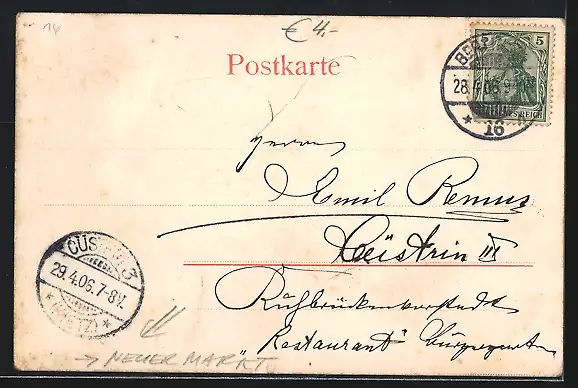 14
€ 4,-
Postkarte
5
BERLIN
28.4.06.9
* 16
REICH
Herrn
Emil Remus
Cüstrin III
"Restaurant" Bürgergarten
CÜSTRIN 3
29.4.06.7-8V.
* (KIETZ) *
→ NEUER MARKT